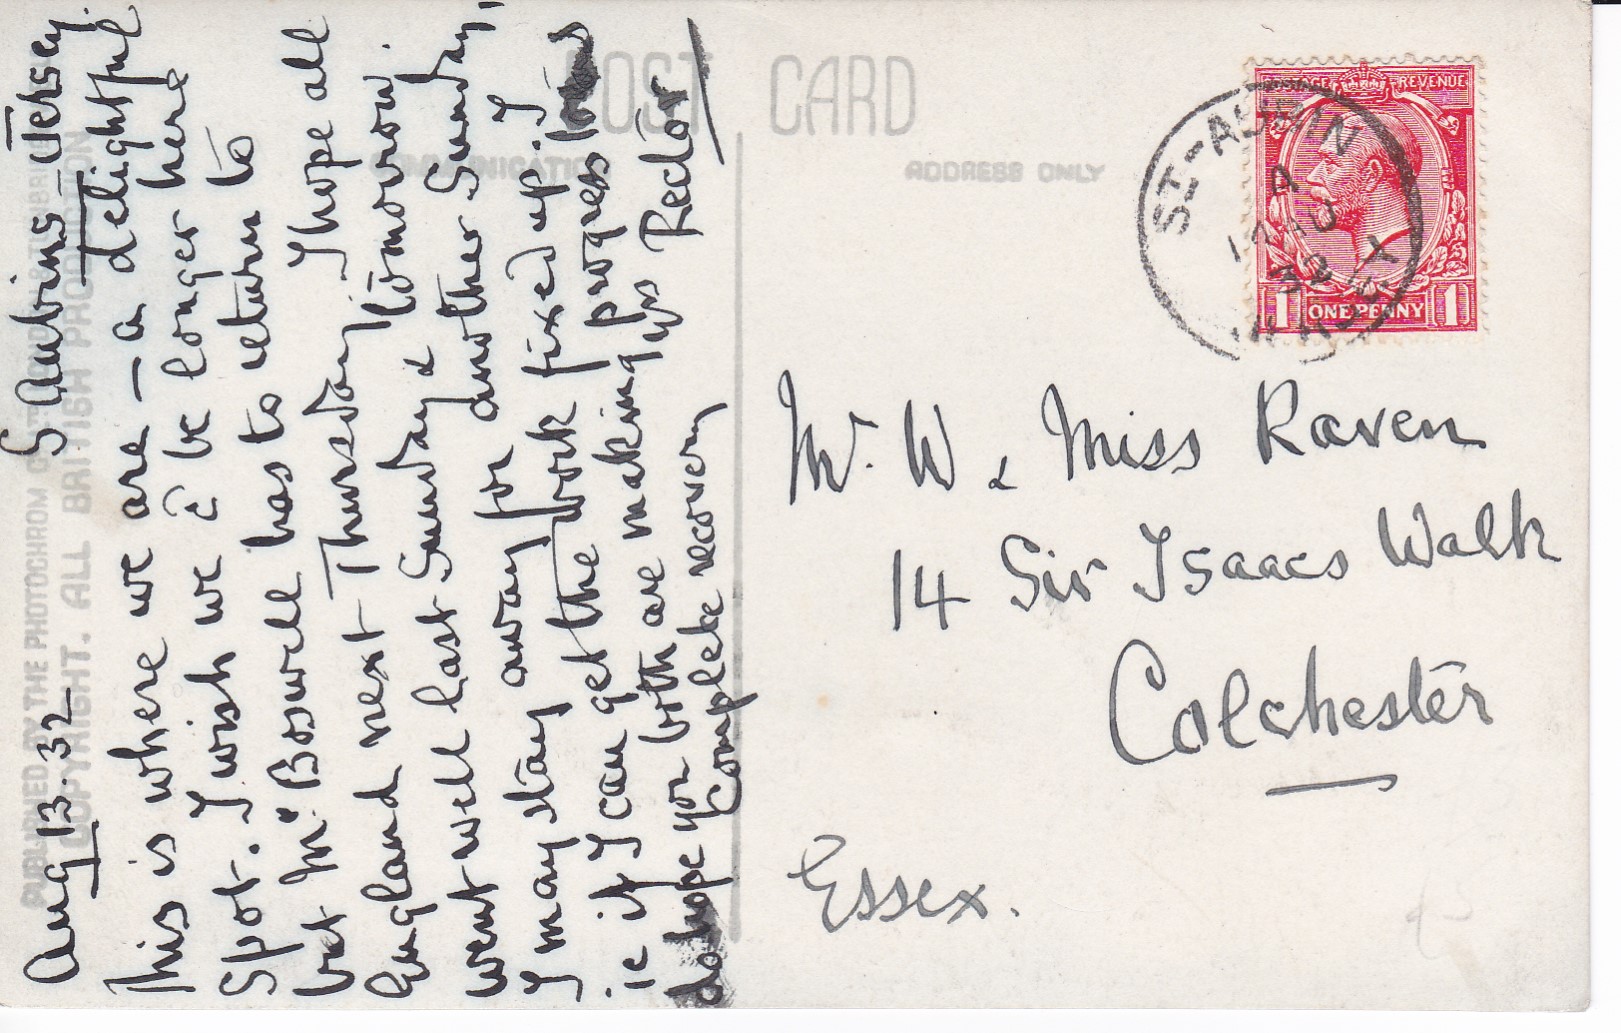 Aug 13.32 S Aubins Jersey.
This is where we are — a delightful
Spot. I wish we cd be longer here
but Mrs Boswell has to return to
England next Thursday. I hope all
went well last Sunday & tomorrow.
I may stay away for another Sunday,
ie if I can get the work fixed up. I
do hope you both are making progress to
complete recovery yrs Rector
POST CARD
COMMUNICATION
ADDRESS ONLY
PUBLISHED BY THE PHOTOCHROM CO
COPYRIGHT. ALL BRITISH PRODUCTION
POSTAGE REVENUE
1 ONE PENNY 1
ST-AUBIN
12 AU
32
JERSEY
Mr. W & Miss Raven
14 Sir Isaacs Walk
Colchester
Essex.